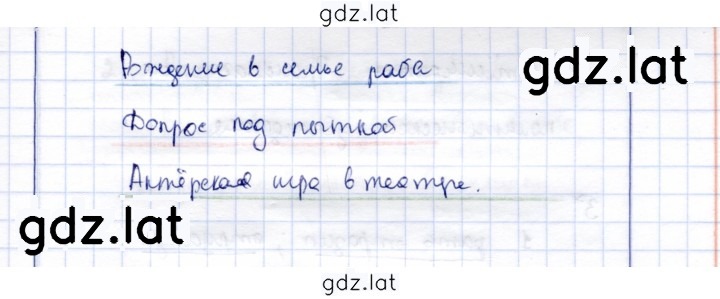 gdz.lat
gdz.lat
Рождение в семье раба
Допрос под пыткой
Актёрская игра в театре.
gdz.lat
gdz.lat